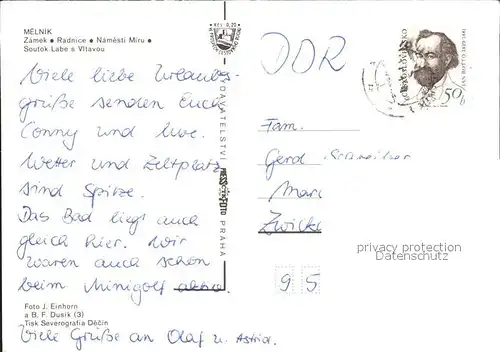 MĚLNÍK
Zámek • Radnice • Náměstí Míru •
Soutok Labe s Vltavou
Kčs 0,20
DDR
ČESKOSLOVENSKO
50h
JÁN BOTTO 1829-1881
Viele liebe Urlaubs-
grüße senden Euch
Conny und Uwe.
Wetter und Zeltplatz
sind Spitze.
Das Bad liegt auch
gleich hier. Wir
waren auch schon
beim Minigolf aktiv.
VYDAVATELSTVÍ PRESSFOTO PRAHA
Fam.
Gerd Schreiber
Mari
Zwick
privacy protection
Datenschutz
95
Foto J. Einhorn
a B. F. Dusík (3)
Tisk Severografia Děčín
Viele Grüße an Olaf u. Astrid.